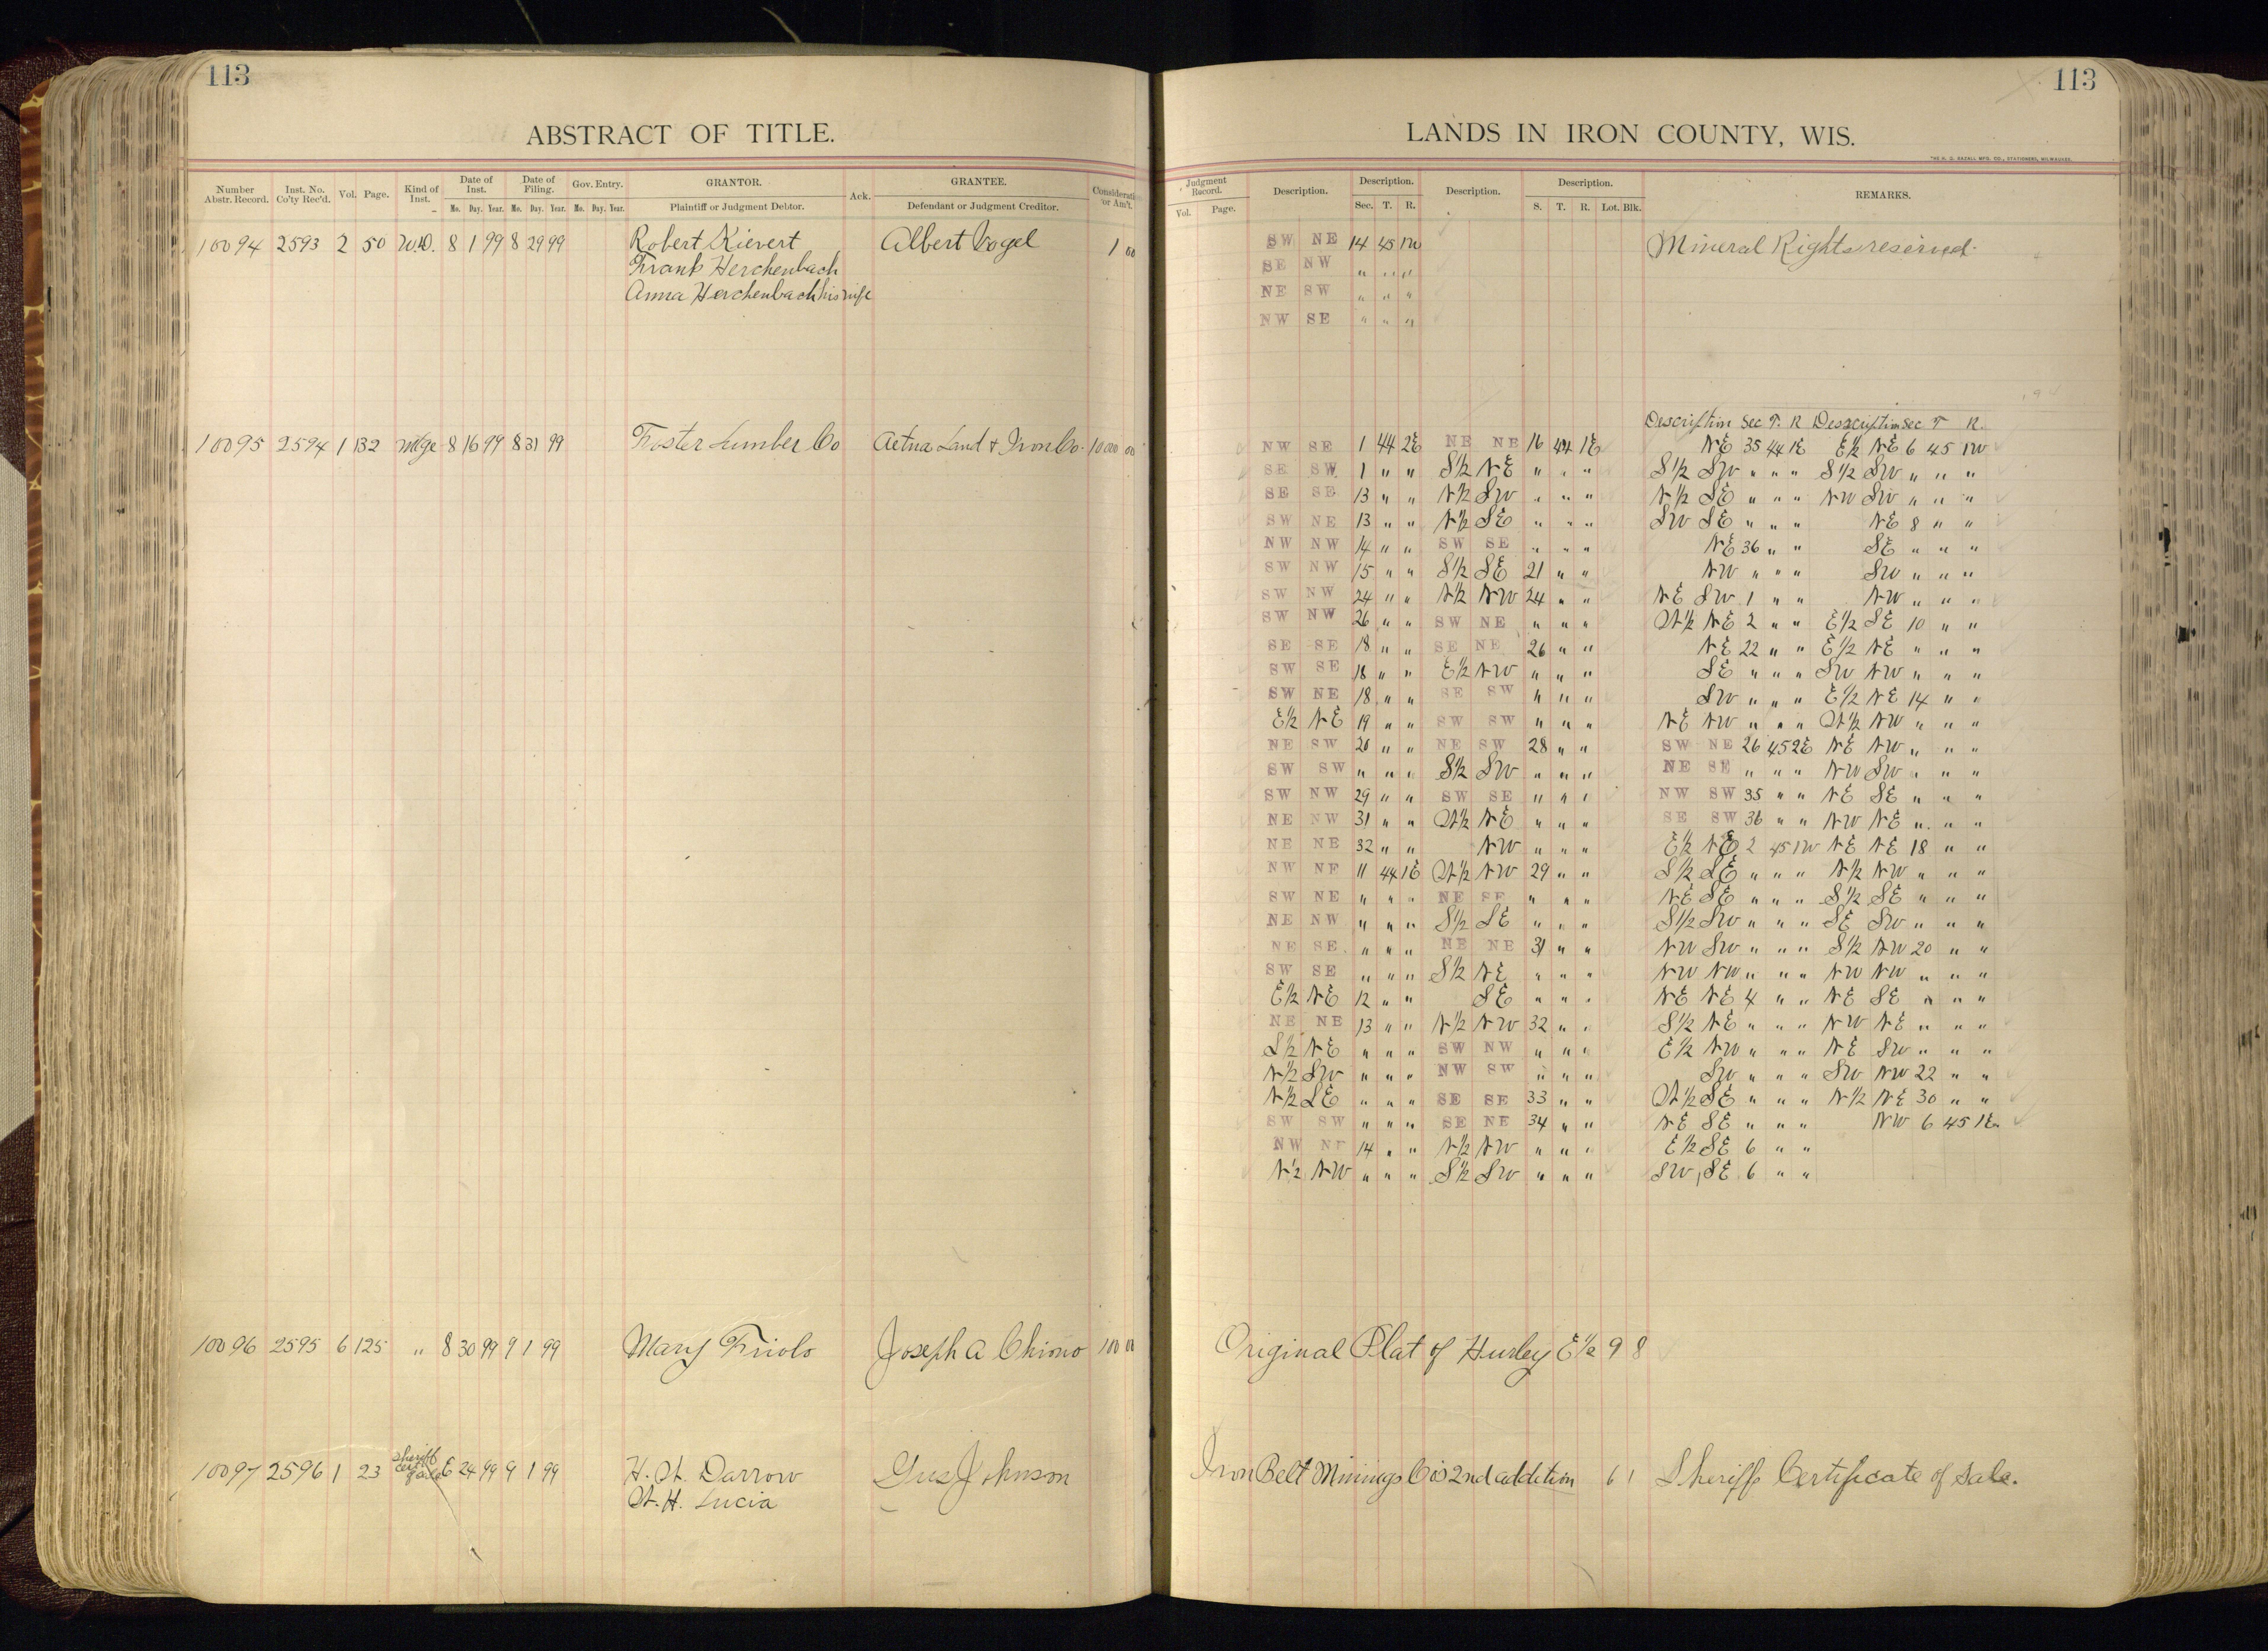 113
ABSTRACT OF TITLE.
Number Abstr. Record. Inst. No. Co'ty Rec'd. Vol. Page. Kind of Inst. Date of Inst. Date of Filing. Gov. Entry. GRANTOR. Ack. GRANTEE. Consideration or Am't.
Mo. Day. Year. Mo. Day. Year. Mo. Day. Year. Plaintiff or Judgment Debtor. Defendant or Judgment Creditor.
10094 2593 2 50 W.D. 8 1 99 8 29 99 Robert Kievert Albert Vogel 1 00
Frank Herchenbach
Anna Herchenbach his wife
10095 2594 1 132 Mtge 8 16 99 8 31 99 Foster Lumber Co Aetna Land & Iron Co. 10000 00
10096 2595 6 125 " 8 30 99 9 1 99 Mary Friolo Joseph A Chimo 100 00
10097 2596 1 23 Sheriff Cert of Sale 6 24 99 9 1 99 H. W. Darrow Gus Johnson
W. H. Lucia
113
LANDS IN IRON COUNTY, WIS.
THE H. G. RAZALL MFG. CO., STATIONERS, MILWAUKEE.
Judgment Record. Description. Description. Description. Description. REMARKS.
Vol. Page. Sec. T. R. S. T. R. Lot. Blk.
SW NE 14 45 1W Mineral Rights reserved.
SE NW " " "
NE SW " " "
NW SE " " "
Description Sec T. R Description Sec T R.
NW SE 1 44 2E NE NE 16 44 1E NE 35 44 1E E½ NE 6 45 1W
SE SW 1 " " S½ NE " " " S½ SW " " " S½ SW " " "
SE SE 13 " " N½ SW " " " N½ SE " " " NW SW " " "
SW NE 13 " " N½ SE " " " SW SE " " " NE 8 " "
NW NW 14 " " SW SE " " " NE 36 " " SE " " "
SW NW 15 " " S½ SE 21 " " NW " " " SW " " "
SW NW 24 " " N½ NW 24 " " NE SW 1 " " NW " " "
SW NW 26 " " SW NE " " " W½ NE 2 " " E½ SE 10 " "
SE SE 18 " " SE NE 26 " " NE 22 " " E½ NE " " "
SW SE 18 " " E½ NW " " " SE " " " SW NW " " "
SW NE 18 " " SE SW " " " SW " " " E½ NE 14 " "
E½ NE 19 " " SW SW " " " NE NW " " " W½ NW " " "
NE SW 20 " " NE SW 28 " " SW NE 26 45 2E NE NW " " "
SW SW " " " S½ SW " " " NE SE " " " NW SW " " "
SW NW 29 " " SW SE " " " NW SW 35 " " NE SE " " "
NE NW 31 " " W½ NE " " " SE SW 36 " " NW NE " " "
NE NE 32 " " NW " " " E½ NE 2 45 1W NE NE 18 " "
NW NE 11 44 1E W½ NW 29 " " S½ SE " " " N½ NW " " "
SW NE " " " NE SE " " " NE SE " " " S½ SE " " "
NE NW " " " S½ SE " " " S½ SW " " " SE SW " " "
NE SE " " " NE NE 31 " " NW SW " " " S½ NW 20 " "
SW SE " " " S½ NE " " " NW NW " " " NW NW " " "
E½ NE 12 " " SE " " " NE NE 4 " " NE SE " " "
NE NE 13 " " N½ NW 32 " " S½ NE " " " NW NE " " "
S½ NE " " " SW NW " " " E½ NW " " " NE SW " " "
N½ SW " " " NW SW " " " SW " " " SW NW 22 " "
N½ SE " " " SE SE 33 " " W½ SE " " " N½ NE 30 " "
SW SW " " " SE NE 34 " " NE SE " " " NW 6 45 1E
NW NE 14 " " N½ NW " " " E½ SE 6 " "
N½ NW " " " S½ SW " " " SW SE 6 " "
Original Plat of Hurley E½ 9 8
Iron Belt Minings Co's 2nd addition 6 1 Sheriff Certificate of Sale.